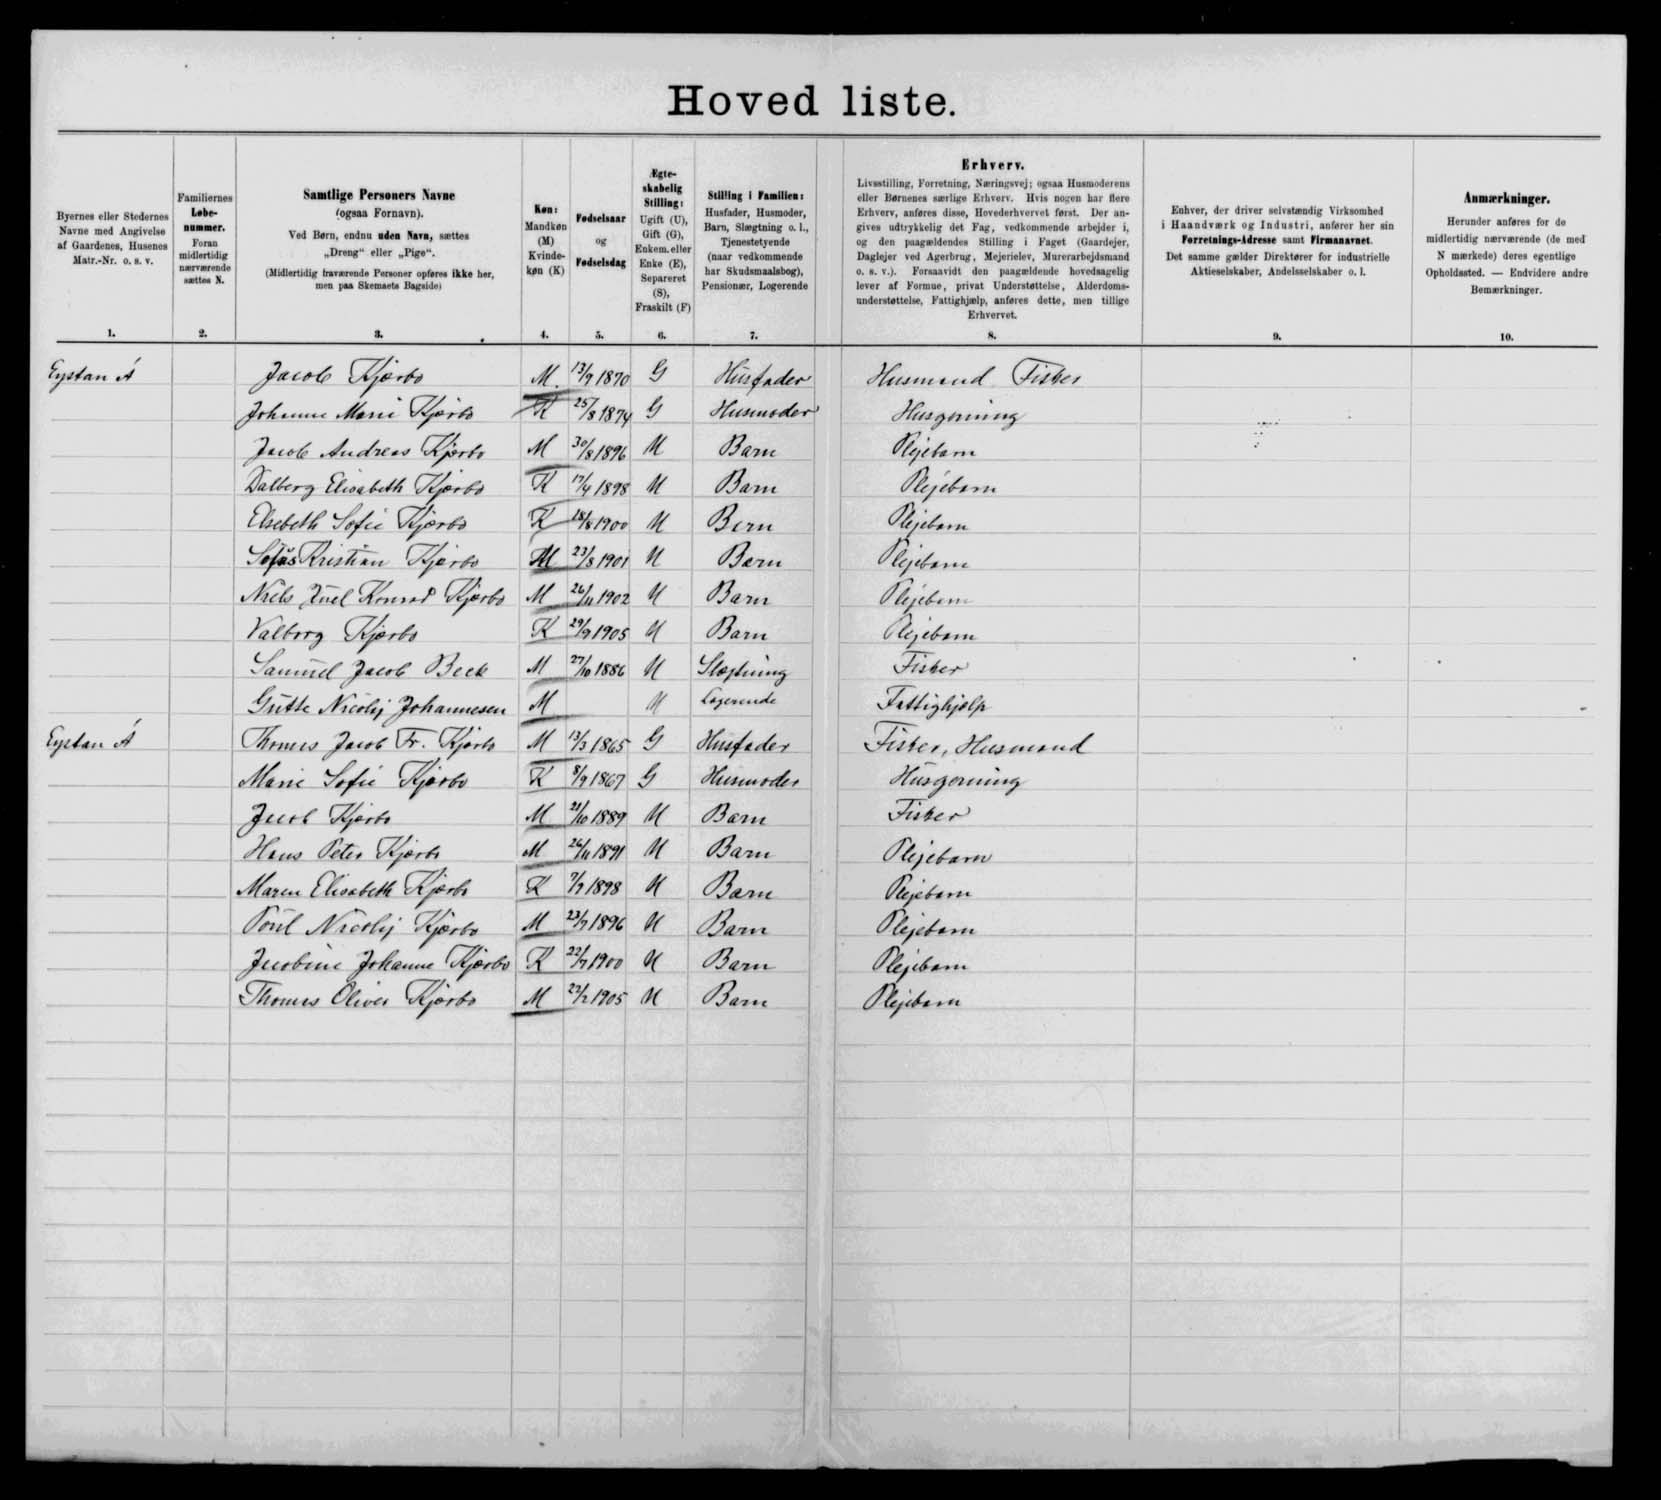 Hoved liste.
Byernes eller Stedernes Navne med Angivelse af Gaardenes, Husenes Matr.-Nr. o. s. v.
Familiernes Løbe-nummer. Foran midlertidig nærværende sættes N.
Samtlige Personers Navne (ogsaa Fornavn). Ved Børn, endnu uden Navn, sættes „Dreng“ eller „Pige“. (Midlertidig fraværende Personer opføres ikke her, men paa Skemaets Bagside)
Køn: Mandkøn (M) Kvinde-køn (K)
Fødselsaar og Fødselsdag
Ægte-skabelig Stilling: Ugift (U), Gift (G), Enkem. eller Enke (E), Separeret (S), Fraskilt (F)
Stilling i Familien: Husfader, Husmoder, Barn, Slægtning o. l., Tjenestetyende (naar vedkommende har Skudsmaalsbog), Pensionær, Logerende
Erhverv.
Livsstilling, Forretning, Næringsvej; ogsaa Husmoderens
eller Børnenes særlige Erhverv. Hvis nogen har flere
Erhverv, anføres disse, Hovederhvervet først. Der an-
gives udtrykkelig det Fag, vedkommende arbejder i,
og den paagældendes Stilling i Faget (Gaardejer,
Daglejer ved Agerbrug, Mejerielev, Murerarbejdsmand
o. s. v.). Forsaavidt den paagældende hovedsagelig
lever af Formue, privat Understøttelse, Alderdoms-
understøttelse, Fattighjælp, anføres dette, men tillige
Erhvervet.
Enhver, der driver selvstændig Virksomhed
i Haandværk og Industri, anfører her sin
Forretnings-Adresse samt Firmanavnet.
Det samme gælder Direktører for industrielle
Aktieselskaber, Andelsselskaber o. l.
Anmærkninger.
Herunder anføres for de
midlertidig nærværende (de med
N mærkede) deres egentlige
Opholdssted. — Endvidere andre
Bemærkninger.
1. 2. 3. 4. 5. 6. 7. 8. 9. 10.
Eystan Á Jacob Kjærbo M. 13/9 1870 G Husfader Husmand Fisker
Johanne Marie Kjærbo K 25/8 1874 G Husmoder Husgerning
Jacob Andreas Kjærbo M 30/8 1896 U Barn Plejebarn
Dalberg Elisabeth Kjærbo K 17/4 1898 U Barn Plejebarn
Elsebeth Sofie Kjærbo K 18/8 1900 U Barn Plejebarn
Sofus Kristian Kjærbo M 23/8 1901 U Barn Plejebarn
Niels Juel Konrad Kjærbo M 26/11 1902 U Barn Plejebarn
Valborg Kjærbo K 29/9 1905 U Barn Plejebarn
Samuel Jacob Beck M 27/10 1886 U Slægtning Fisker
Gutte Nicolij Johannesen M U Logerende Fattighjælp
Eystan Á Thomas Jacob Fr. Kjærbo M 13/3 1865 G Husfader Fisker, Husmand
Marie Sofie Kjærbo K 8/9 1867 G Husmoder Husgerning
Jacob Kjærbo M 21/10 1889 U Barn Fisker
Hans Peter Kjærbo M 26/11 1891 U Barn Plejebarn
Maren Elisabeth Kjærbo K 7/7 1898 U Barn Plejebarn
Poul Nicolij Kjærbo M 23/7 1896 U Barn Plejebarn
Jacobine Johanne Kjærbo K 22/7 1900 U Barn Plejebarn
Thomas Oliver Kjærbo M 22/2 1905 U Barn Plejebarn